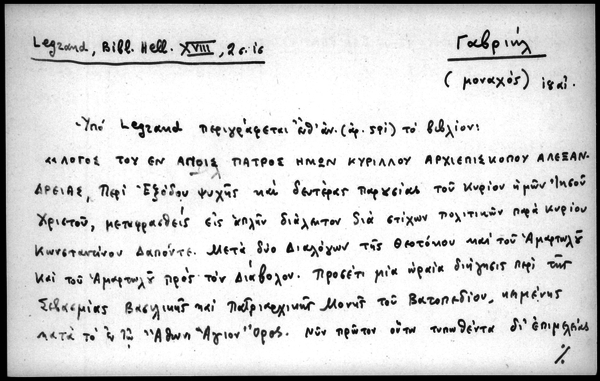 Legrand, Bibl. Hell. XVIII, 2
Γαβριήλ
(μοναχός)
-Ὑπό Legrand περιγράφεται ἐνθ' ἀν. (ἀρ. 591) τό βιβλίον:
"ΛΟΓΟΣ ΤΟΥ ΕΝ ΑΓΙΟΙΣ ΠΑΤΡΟΣ ΗΜΩΝ ΚΥΡΙΛΛΟΥ ΑΡΧΙΕΠΙΣΚΟΠΟΥ ΑΛΕΞΑΝ
ΔΡΕΙΑΣ, Περί Ἐξόδου ψυχῆς καί δευτέρας παρουσίας τοῦ Κυρίου ἡμῶν Ἰησοῦ
Χριστοῦ, μεταφρασθείς εἰς ἁπλῆν διάλεκτον διά στίχων πολιτικῶν παρά κυρίου
Κωνσταντίνου Δαπόντε. Μετά δύο Διαλόγων τῆς Θεοτόκου καί τοῦ Ἁμαρτωλοῦ
καί τοῦ Ἁμαρτωλοῦ πρός τόν Διάβολον. Προσέτι μία ὡραία διήγησις περί τῆς
Σεβασμίας Βασιλικῆς καί Πατριαρχικῆς Μονῆς τοῦ Βατοπεδίου, κειμένης
κατά τό ἐν τῷ Ἄθωνι Ἅγιον Ὄρος. Νῦν πρῶτον οὕτω τυπωθέντα δι' ἐπιμελείας
%